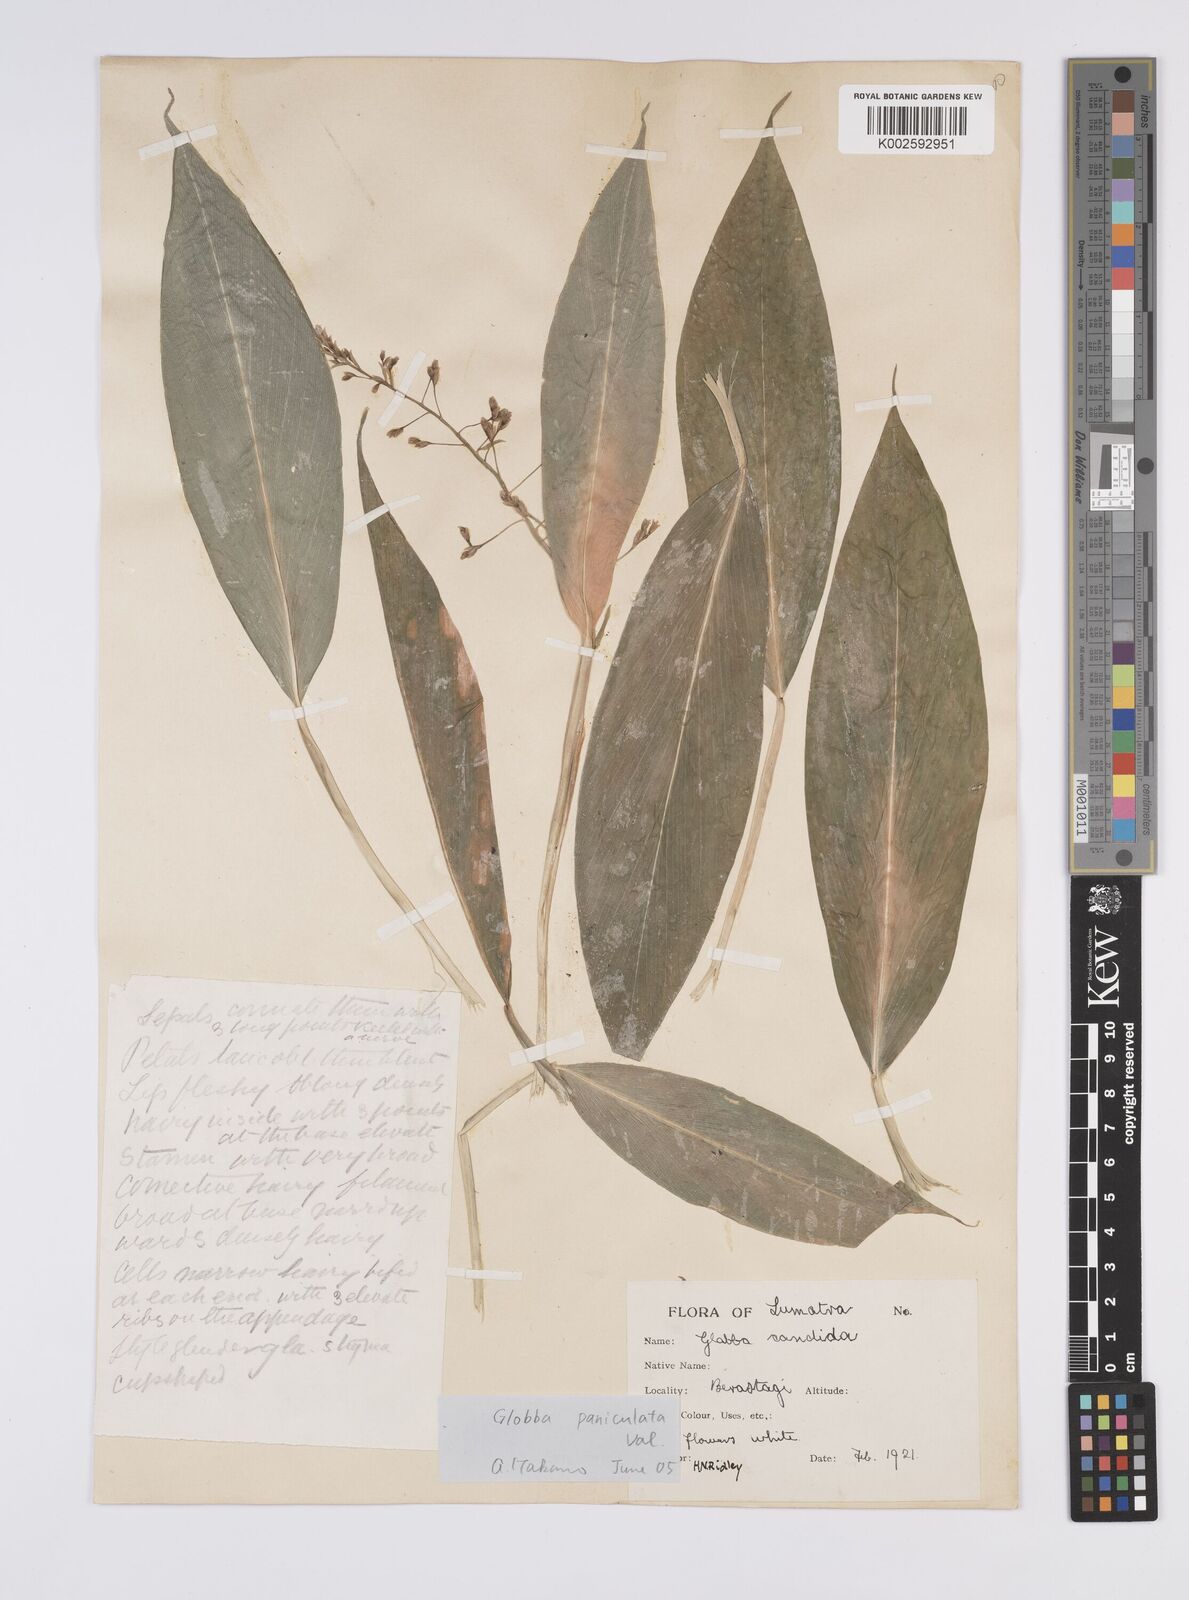 ROYAL BOTANIC GARDENS KEW
K002592951
Sepals connate thin with
3 long points
Petals lanc obl thin blunt
Lip fleshy oblong densely
hairy inside with 3 points
at the base elevate
Stamen with very broad
connective hairy filament
broad at base narrow up
wards densely hairy
Cells narrow hairy bifid
at each end. with 3 elevate
ribs on the appendage
Style slender gla. stigma
cupshaped
FLORA OF Sumatra No.
Name: Globba candida
Native Name:
Locality: Berastagi Altitude:
Colour, Uses, etc.,:
flowers white
or: H.N.Ridley Date: Feb. 1921.
Globba paniculata
Val.
A. Takano June 05
inches
Density
Don Williams
centimeters
M001011
Royal Botanic Gardens
Kew
0 1 2 3 4 5 6 7 8 9 10 cm
copyright reserved